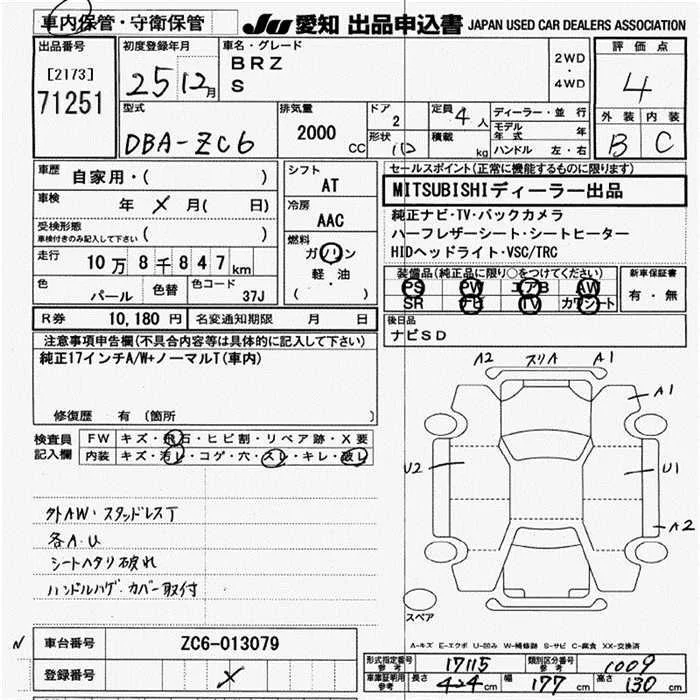 車内保管・守衛保管
JU 愛知 出品申込書 JAPAN USED CAR DEALERS ASSOCIATION
出品番号
[2173]
71251
初度登録年月
25 12月
車名・グレード
BRZ
S
2WD
・
4WD
評価点
4
外装 内装
B C
型式
DBA-ZC6
排気量
2000 CC
ドア
2
形状
定員 4 人
積載 kg
ディーラー・並行
モデル年式 年
ハンドル 左・右
車歴
自家用・( )
車検
年 X 月( 日)
受検形態
車検付きのみ記入して下さい ( )
走行
10万8千847km
色
パール
色替
色コード
37J
シフト
AT
冷房
AAC
燃料
ガソリン
軽・油
( )
セールスポイント(正常に機能するものに限ります)
MITSUBISHIディーラー出品
純正ナビ・TV・バックカメラ
ハーフレザーシート・シートヒーター
HIDヘッドライト・VSC/TRC
装備品(純正品に限り○をつけてください)
PS PW エアB AW
SR ナビ TV カワシート
新車保証書
有・無
R券 10,180 円 名変通知期限 月 日
後日品
ナビSD
注意事項申告欄(不具合内容等は具体的に記入して下さい)
純正17インチA/W+ノーマルT(車内)
修復歴 有 〔箇所 〕
検査員記入欄
FW キズ・飛石・ヒビ割・リペア跡・X要
内装 キズ・汚レ・コゲ・穴・スレ・キレ・破レ
外AW・スタッドレスT
各A・U
シートヘタリ破れ
ハンドルハゲ・カバー取付
A2 スリA A1
A1
U2
U1
A2
スペア
A-キズ E-エクボ U-凹み W-補修跡 S-サビ C-腐食 XX-交換済
N
車台番号 ZC6-013079
登録番号 X
形式指定番号参考 17115 類別区分番号参考 1009
車庫証明用参考 長さ 424 cm 幅 177 cm 高さ 130 cm